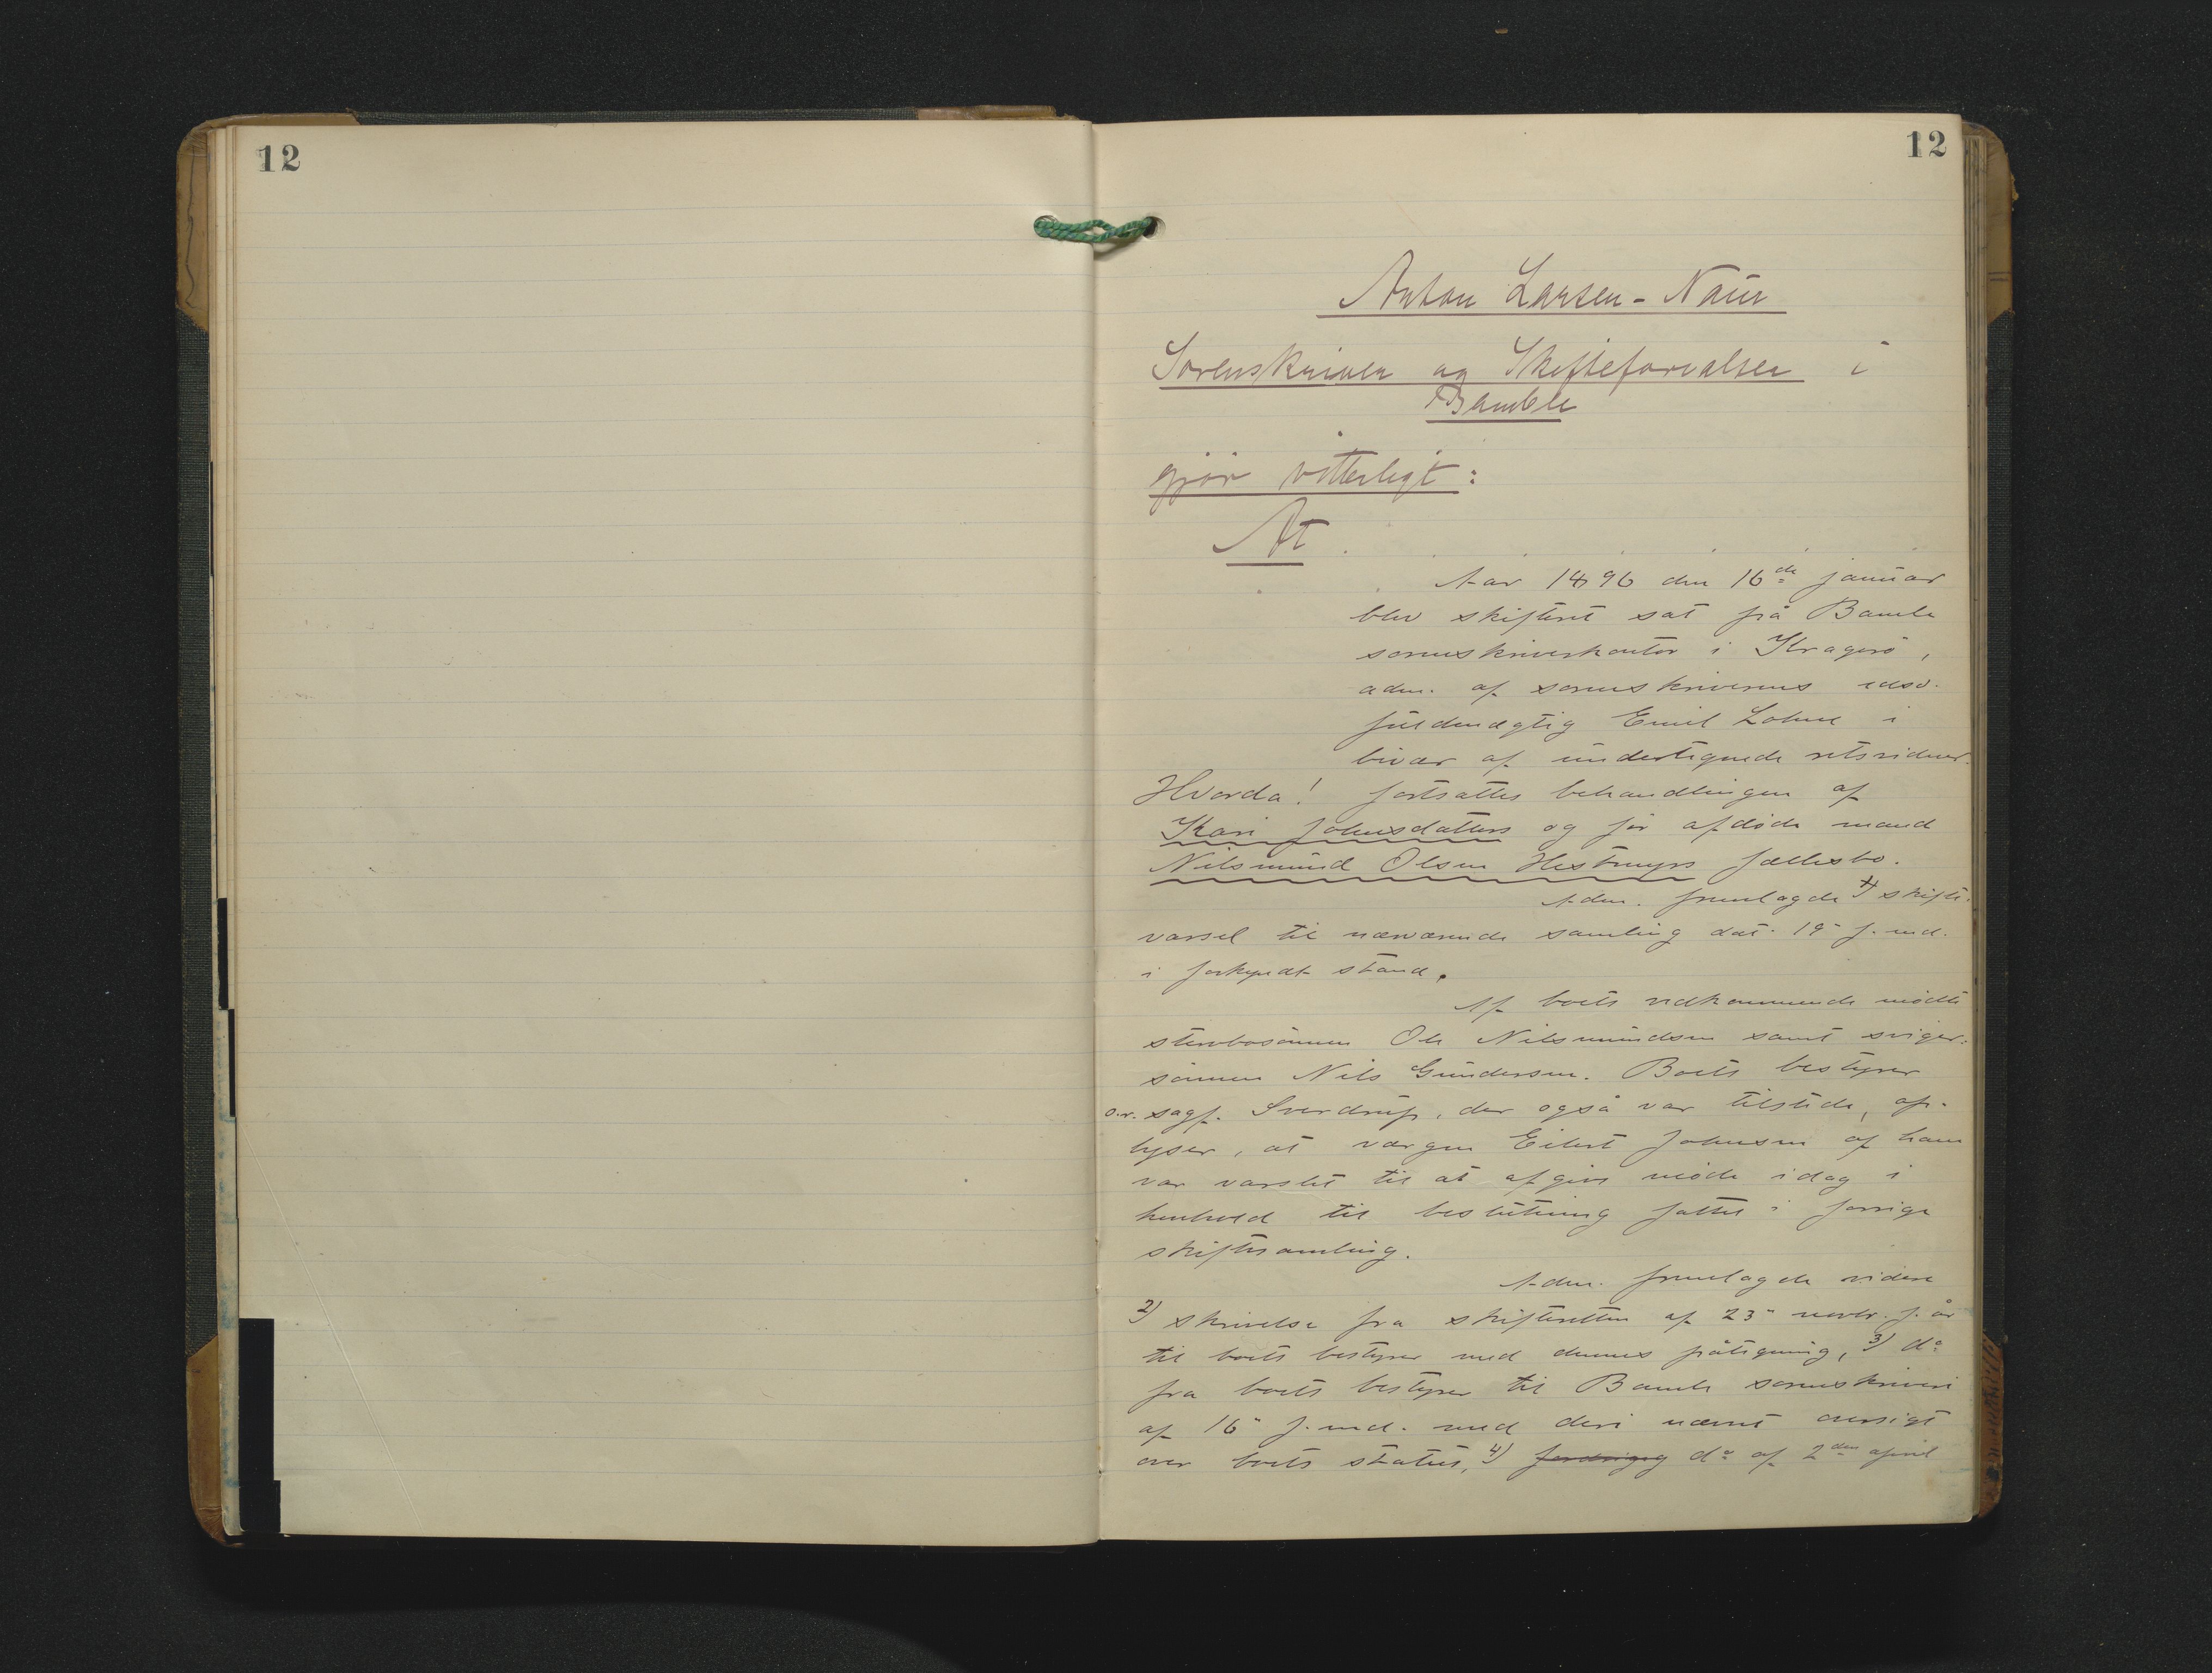 12
12
Anton Larsen-Naur
Sorenskriver og Skifteforvalter i
Bamble
gjör vitterligt:
At
Aar 1896 den 16de januar
blev skifteret sat på Bamle
sorenskriverkontor i Kragerö,
adm. af sorenskriverens edsv.
fuldmægtig Emil Lohne i
bivær af undertegnede retsvidner.
Hvorda! fortsattes behandlingen af
Kari Johnsdatters og før afdöde mand
Nilsmund Olsen Hestmyrs fællesbo.
Adm. fremlagde 1) skifte-
varsel til nærværende samling dat. 19- f. md.
i forkyndt stand.
Af boets vedkommende mødte
stervbosönnen Ole Nilsmundsen samt sviger-
sönnen Nils Gundersen. Boets bestyrer
o.r. sagf. Sverdrup, der også var tilstede, op-
lyser, at værgen Eilert Johnsen af ham
var varslet til at afgive møde idag i
henhold til beslutning fattet i forrige
skiftesamling.
Adm. fremlagde videre
2) skrivelse fra skifteretten af 23- novbr. f. år
til boets bestyrer med dennes påtegning, 3) do
fra boets bestyrer til Bamle sorenskriveri
af 16- f. md. med deri nævnt oversigt
over boets status, 4) do af 2den april